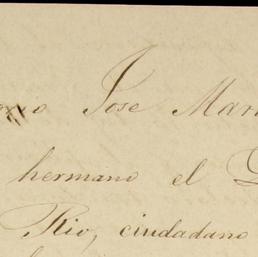 Jose Mar
hermano el
Rio, ciudadano